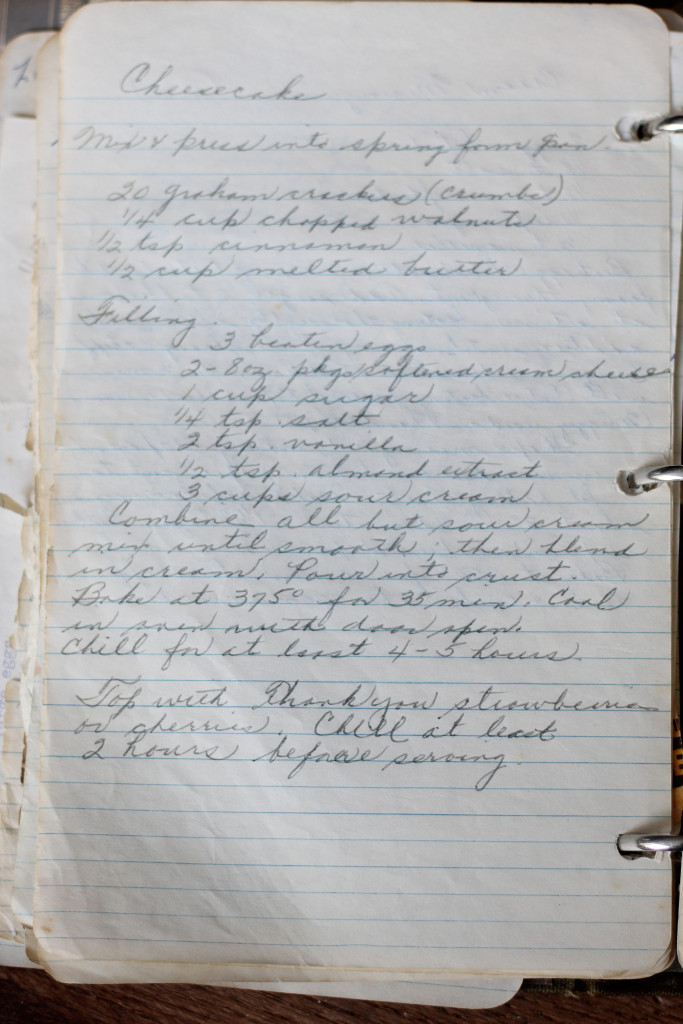 Cheesecake
Mix & press into spring form pan.
20 graham crackers (crumbs)
1/4 cup chopped walnuts
1/2 tsp cinnamon
1/2 cup melted butter
Filling.
3 beaten eggs
2-8oz pkgs softened cream cheese
1 cup sugar
1/4 tsp. salt
2 tsp. vanilla
1/2 tsp. almond extract
3 cups sour cream
Combine all but sour cream
mix until smooth; then blend
in cream. Pour into crust.
Bake at 375° for 35 min. Cool
in oven with door open.
Chill for at least 4-5 hours.
Top with Thank you strawberries
or cherries. Chill at least
2 hours before serving.